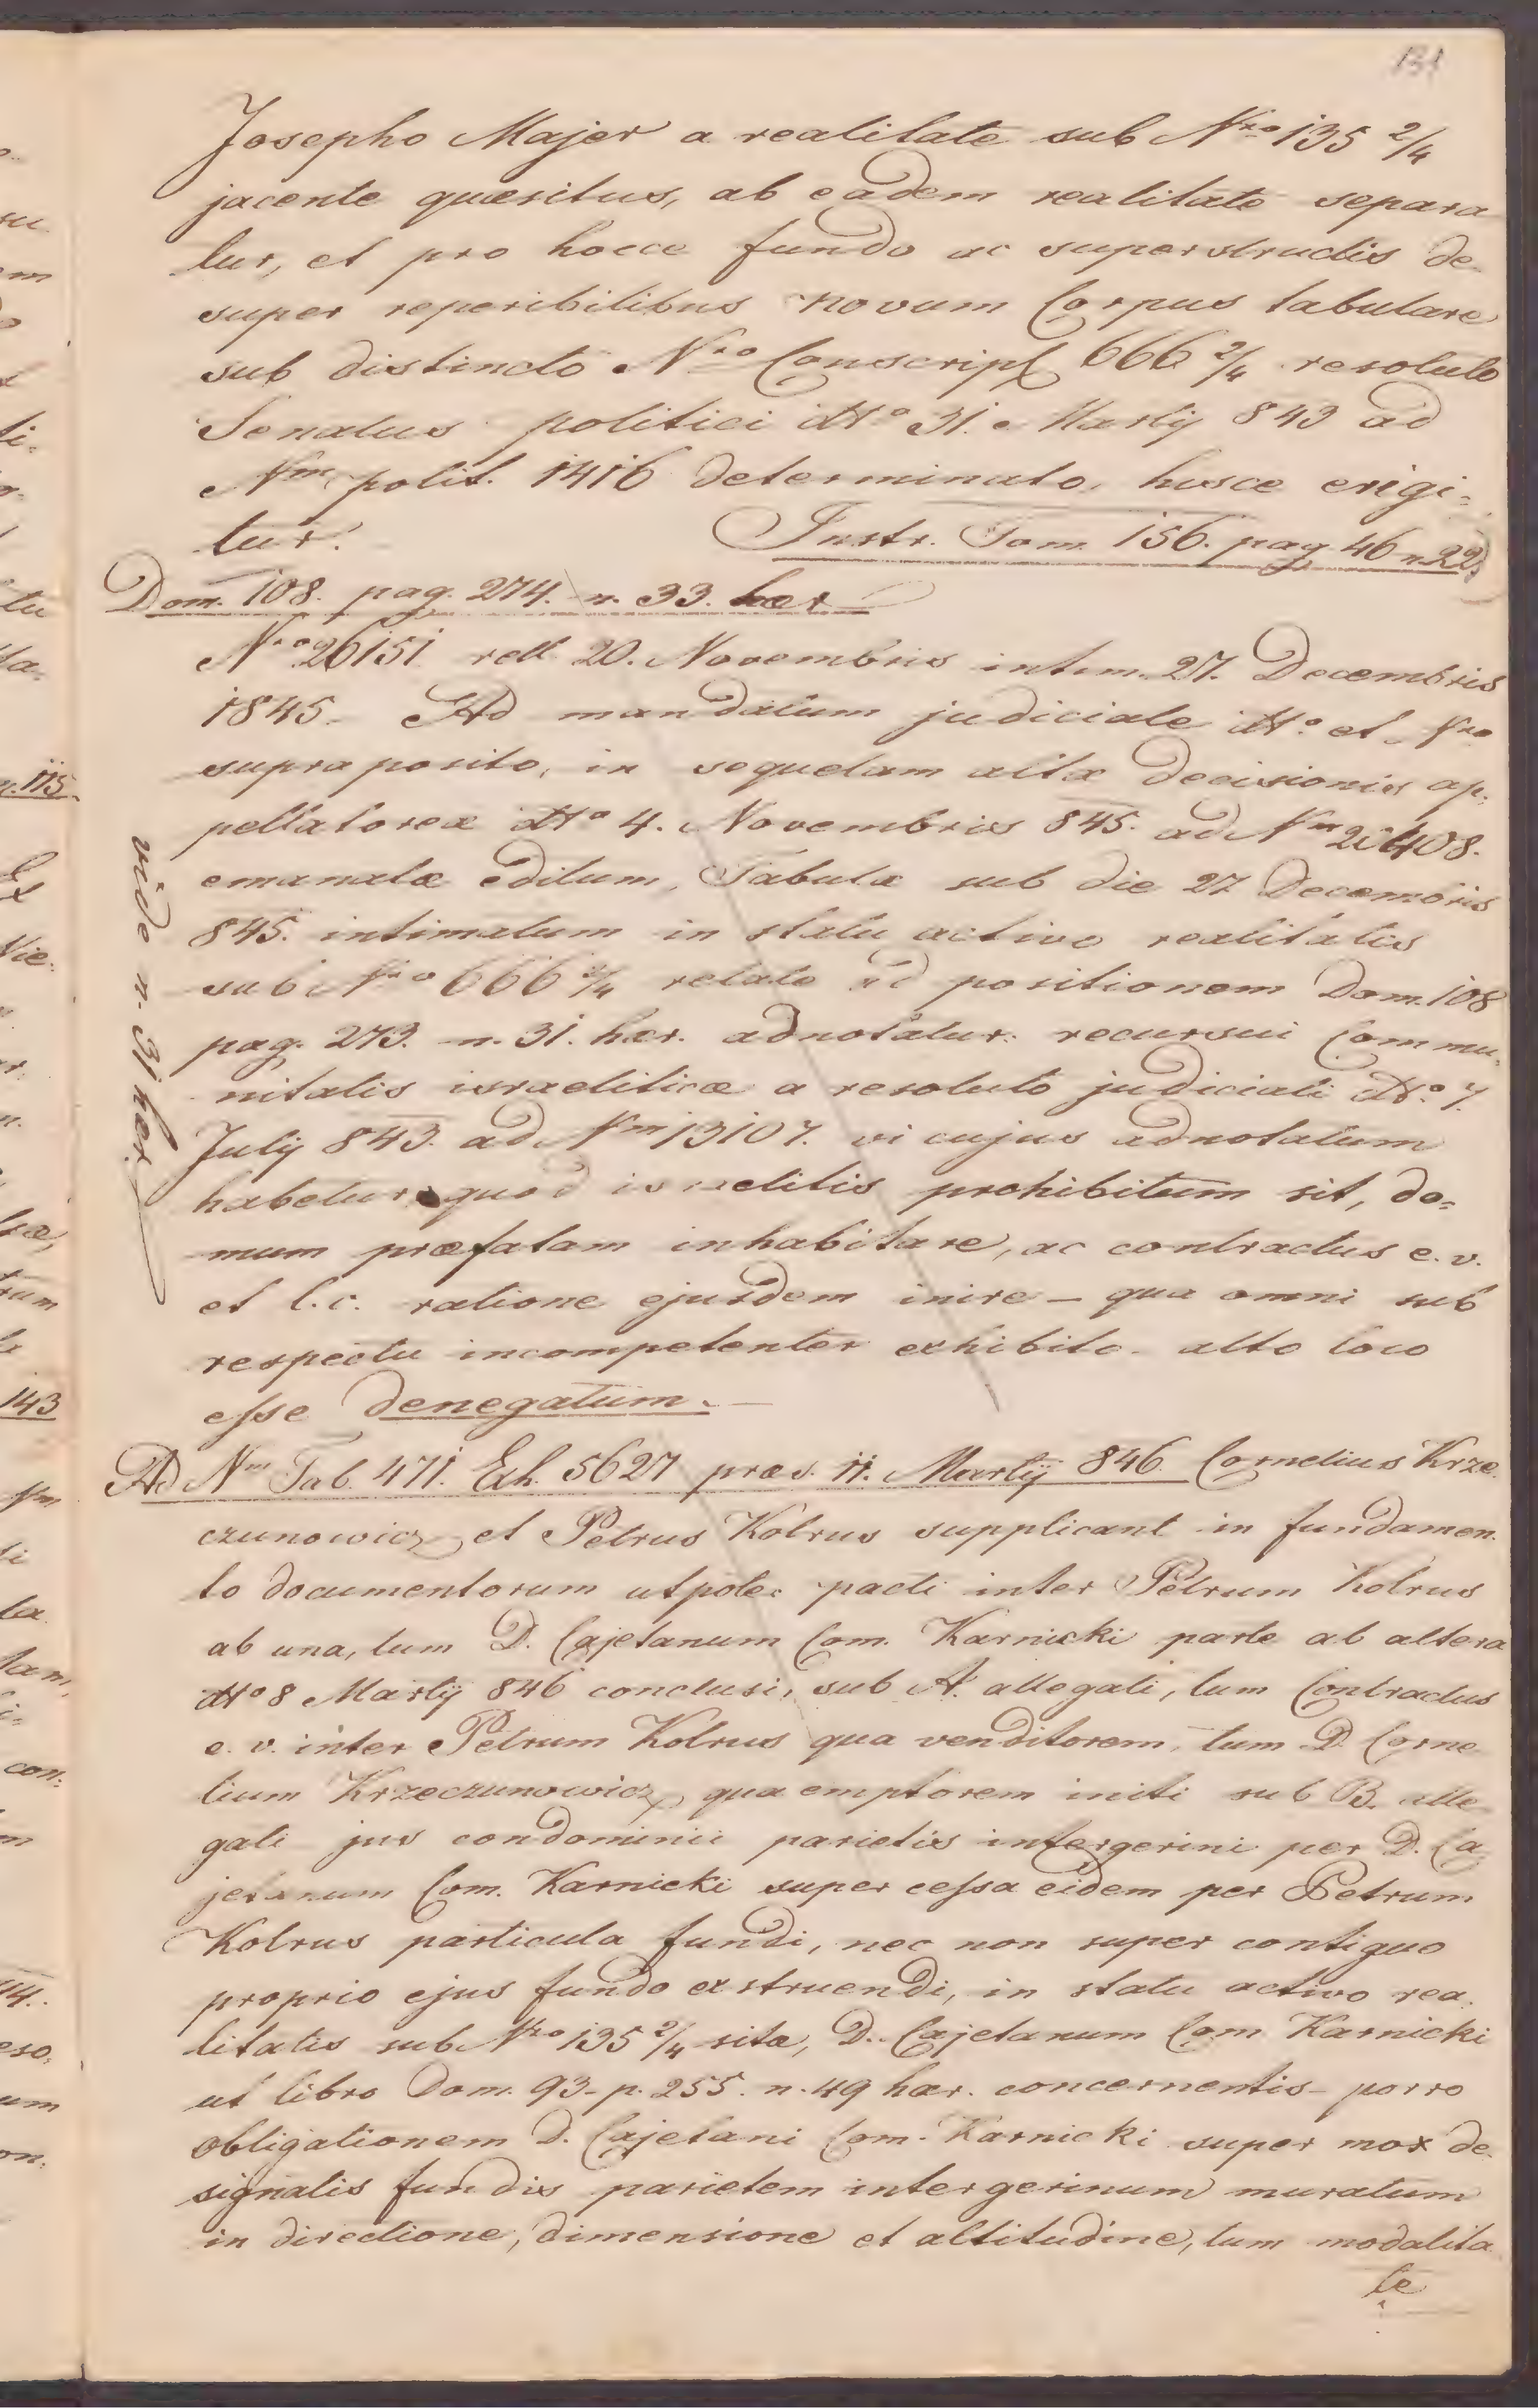 131
Josepho Majer a realitate sub Nro 135 2/4
jacente quæsitus, ab eadem realitate separa
tur, et pro hocce fundo ac superstructis de-
super reperibilibus novum Corpus tabulare
sub distincto Nro Conscript 666 2/4 resoluto
Senatus politici dto 31. Martij 843 ad
Nm polit. 1416 determinato, husce erigi=
tur. Instr. Tom. 156. pag 46 n. 22)
Dom. 108. pag. 274. n. 33. hær
Nro 26151 rell 20. Novembris intim. 27. Decembris
1845. Ad mandatum judiciale dto et Nro
supra posito, in sequelam altæ decisionis ap=
pellatoreæ dto 4. Novembris 845. ad Nm 20408.
emanatæ editum, Tabulæ sub die 27 Decembris
845. intimatum in statu activo realitatis
sub Nro 666 2/4 relate ad positionem Dom. 108
pag. 273. n. 31. hær. adnotatur: recursui Commu=
nitatis israeliticæ a resoluto judiciali dto 7.
July 843. ad Nm 13107. vi cujus adnotatum
habetur quod israelitis prohibitum sit, do=
mum præfatam inhabitare, ac contractus e. v.
et l. c. ratione ejusdem inire – qua omni sub
respectu incompetenter exhibito alto loco
esse denegatum.
vide n. 31 hær.
Ad Nm Tab. 471. Exh. 5627 præs. 11. Martij 846. Cornelius Krze
czunowicz et Petrus Kolrus supplicant in fundamen=
to documentorum utpote: pacti inter Petrum Kolrus
ab una, tum D. Cajetanum Com. Karnicki parte ab altera
dto 8 Martij 846 conclusi, sub A. allegati, tum Contractus
e. v. inter Petrum Kolrus qua venditorem, tum D. Corne
lium Krzeczunowicz, qua emptorem initi sub B. alle
gati jus condominii parietis intergerini per D. Ca
jetanum Com. Karnicki super cessa eidem per Petrum
Kolrus particula fundi, nec non super contiguo
proprio ejus fundo exstruendi, in statu activo rea=
litatis sub Nro 135 2/4 sitæ, D. Cajetanum Com Karnicki
ut libro Dom. 93. p. 255. n. 49 hær. concernentis – porro
obligationem D. Cajetani Com. Karnicki super mox de
signatis fundis parietem intergerinum muratum
in directione, dimensione et altitudine, tum modalita
te